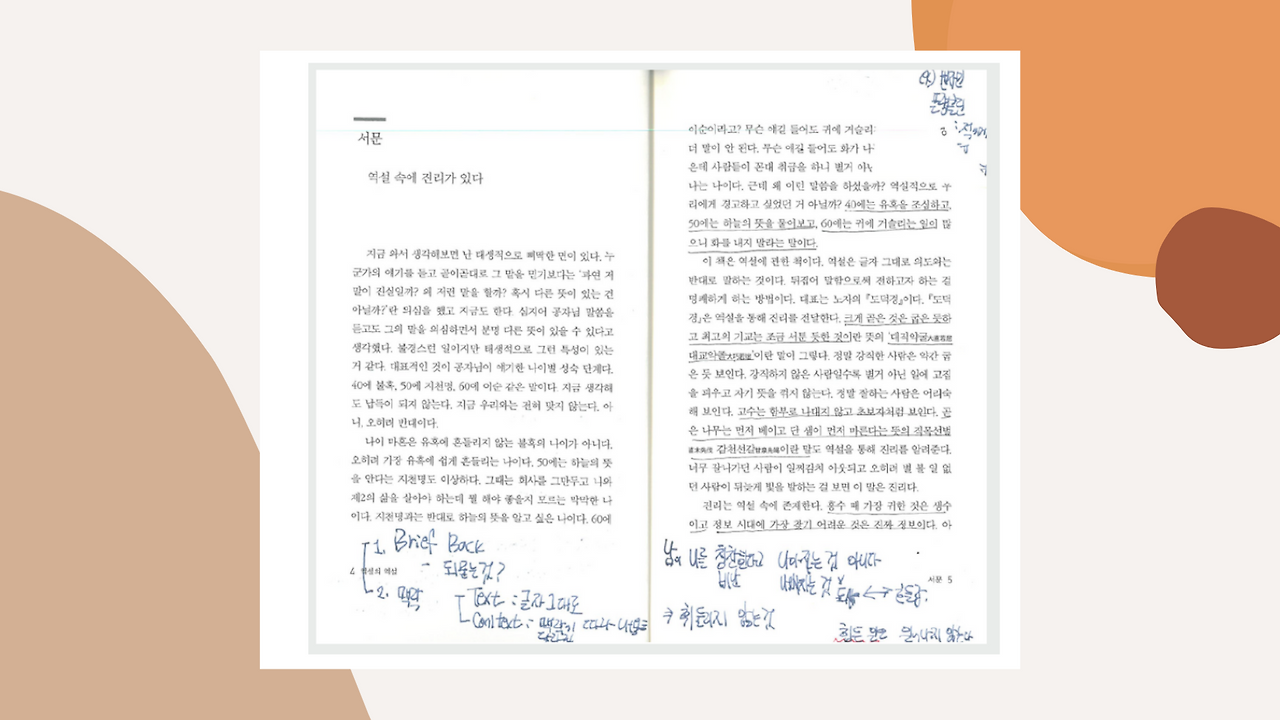 서문
역설 속에 진리가 있다
지금 와서 생각해보면 난 태생적으로 삐딱한 면이 있다. 누
군가의 얘기를 듣고 곧이곧대로 그 말을 믿기보다는 '과연 저
말이 진실일까? 왜 저런 말을 할까? 혹시 다른 뜻이 있는 건
아닐까?'란 의심을 했고 지금도 한다. 심지어 공자님 말씀을
듣고도 그의 말을 의심하면서 분명 다른 뜻이 있을 수 있다고
생각했다. 불경스런 일이지만 태생적으로 그런 특성이 있는
거 같다. 대표적인 것이 공자님이 얘기한 나이별 성숙 단계다.
40에 불혹, 50에 지천명, 60에 이순 같은 말이다. 지금 생각해
도 납득이 되지 않는다. 지금 우리와는 전혀 맞지 않는다. 아
니, 오히려 반대이다.
나이 마흔은 유혹에 흔들리지 않는 불혹의 나이가 아니다.
오히려 가장 유혹에 쉽게 흔들리는 나이다. 50에는 하늘의 뜻
을 안다는 지천명도 이상하다. 그때는 회사를 그만두고 나와
제2의 삶을 살아야 하는데 뭘 해야 좋을지 모르는 막막한 나
이다. 지천명과는 반대로 하늘의 뜻을 알고 싶은 나이다. 60에
1. Brief Back
- 되묻는것?
4 역설
2. 맥락
Text : 글자그대로
Context : 맥락이 따라
이순이라고? 무슨 얘길 들어도 귀에 거슬리
더 말이 안 된다. 무슨 얘길 들어도 화가 나
은데 사람들이 꼰대 취급을 하니 별거 아
나는 나이다. 근데 왜 이런 말씀을 하셨을까? 역설적으로 우
리에게 경고하고 싶었던 거 아닐까? 40에는 유혹을 조심하고,
50에는 하늘의 뜻을 물어보고, 60에는 귀에 거슬리는 일이 많
으니 화를 내지 말라는 말이다.
이 책은 역설에 관한 책이다. 역설은 글자 그대로 의도와는
반대로 말하는 것이다. 뒤집어 말함으로써 전하고자 하는 걸
명쾌하게 하는 방법이다. 대표는 노자의 『도덕경』이다. 『도덕
경』은 역설을 통해 진리를 전달한다. 크게 곧은 것은 굽은 듯하
고 최고의 기교는 조금 서툰 듯한 것이란 뜻의 '대직약굴大直若屈
대교약졸大巧若拙'이란 말이 그렇다. 정말 강직한 사람은 약간 굽
은 듯 보인다. 강직하지 않은 사람일수록 별거 아닌 일에 고집
을 피우고 자기 뜻을 꺾지 않는다. 정말 잘하는 사람은 어리숙
해 보인다. 고수는 함부로 나대지 않고 초보자처럼 보인다. 곧
은 나무는 먼저 베이고 단 샘이 먼저 마른다는 뜻의 직목선벌
直木先伐 감천선갈甘泉先竭이란 말도 역설을 통해 진리를 알려준다.
너무 잘나가던 사람이 일찌감치 아웃되고 오히려 별 볼 일 없
던 사람이 뒤늦게 빛을 발하는 걸 보면 이 말은 진리다.
진리는 역설 속에 존재한다. 홍수 때 가장 귀한 것은 생수
이고 정보 시대에 가장 찾기 어려운 것은 진짜 정보이다. 아
남이 나를 칭찬한다고 나아지는 것 아니다
비난 나빠지는것
서문 5
휘둘리지 않는것
힘든 일어나지 않는다